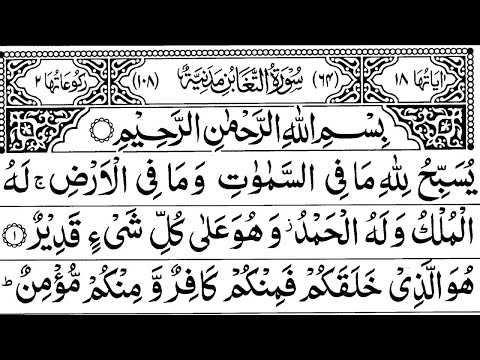 اٰیَاتُهَا ١٨ (٦٤) سُوْرَةُ التَّغَابُنِ مَدَنِیَّةٌ (١٠٨) رُكُوْعَاتُهَا ٢
بِسْمِ اللّٰهِ الرَّحْمٰنِ الرَّحِیْمِ
یُسَبِّحُ لِلّٰهِ مَا فِی السَّمٰوٰتِ وَمَا فِی الْاَرْضِ ۚ لَهُ
الْمُلْكُ وَلَهُ الْحَمْدُ ؗ وَهُوَ عَلٰی كُلِّ شَیْءٍ قَدِیْرٌ ﴿١﴾
هُوَ الَّذِیْ خَلَقَكُمْ فَمِنْكُمْ كَافِرٌ وَّ مِنْكُمْ مُّؤْمِنٌ ؕ